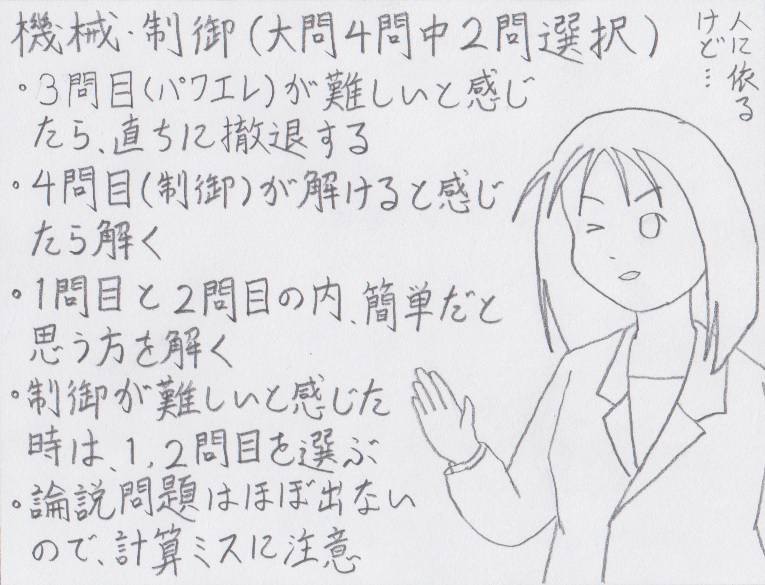 機械・制御(大問4問中2問選択)
・3問目(パワエレ)が難しいと感じ
たら、直ちに撤退する
・4問目(制御)が解けると感じ
たら解く
・1問目と2問目の内、簡単だと
思う方を解く
・制御が難しいと感じた
時は、1,2問目を選ぶ
・論説問題はほぼ出ない
ので、計算ミスに注意
人に依る
けど…